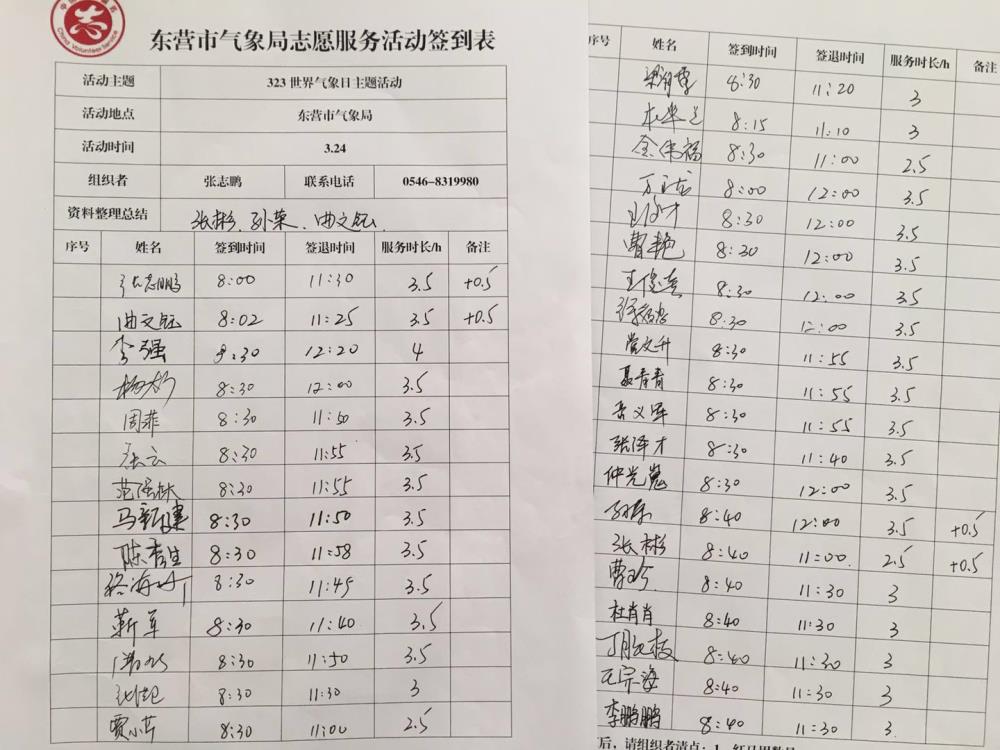 China Volunteer Service
东营市气象局志愿服务活动签到表
活动主题 323 世界气象日主题活动
活动地点 东营市气象局
活动时间 3.24
组织者 张志鹏 联系电话 0546-8319980
资料整理总结 张彬、孙荣、曲文钰
序号 姓名 签到时间 签退时间 服务时长/h 备注
张志鹏 8:00 11:30 3.5 +0.5
曲文钰 8:02 11:25 3.5 +0.5
李强 8:30 12:20 4
8:30 12:00 3.5
周菲 8:30 11:50 3.5
张云 8:30 11:55 3.5
范强 8:30 11:55 3.5
马新健 8:30 11:50 3.5
陈秀生 8:30 11:58 3.5
8:30 11:45 3.5
靳军 8:30 11:40 3.5
8:30 11:50 3.5
8:30 11:30 3
贾小芹 8:30 11:00 2.5
序号 姓名 签到时间 签退时间 服务时长/h 备注
8:30 11:20 3
8:15 11:10 3
金伟福 8:30 11:00 2.5
8:00 12:00 3.5
8:30 12:00 3.5
曹艳 8:30 12:00 3.5
8:30 12:00 3.5
8:30 12:00 3.5
常文升 8:30 11:55 3.5
聂青青 8:30 11:55 3.5
岳义军 8:30 11:55 3.5
张泽才 8:30 11:40 3.5
仲光嵬 8:30 12:00 3.5
孙荣 8:40 12:00 3.5 +0.5
张彬 8:40 11:00 2.5 +0.5
曹玲 8:40 11:30 3
杜肖肖 8:40 11:30 3
8:40 11:30 3
元宗海 8:40 11:30 3
李鹏鹏 8:40 11:30 3
后，请组织者清点：1、红马甲数量